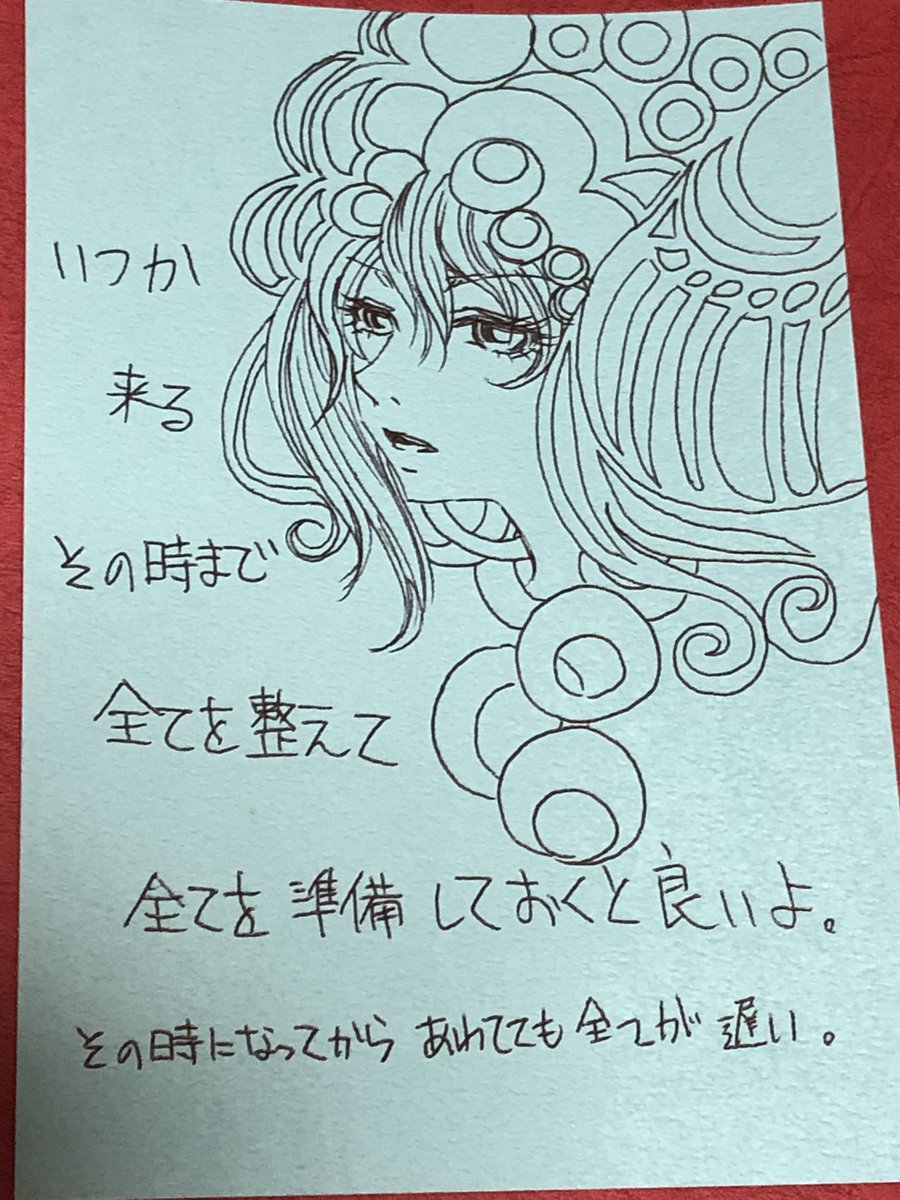 いつか
来る
その時まで
全てを整えて
全てを準備しておくと良いよ。
その時になってから あわてても全てが遅い。